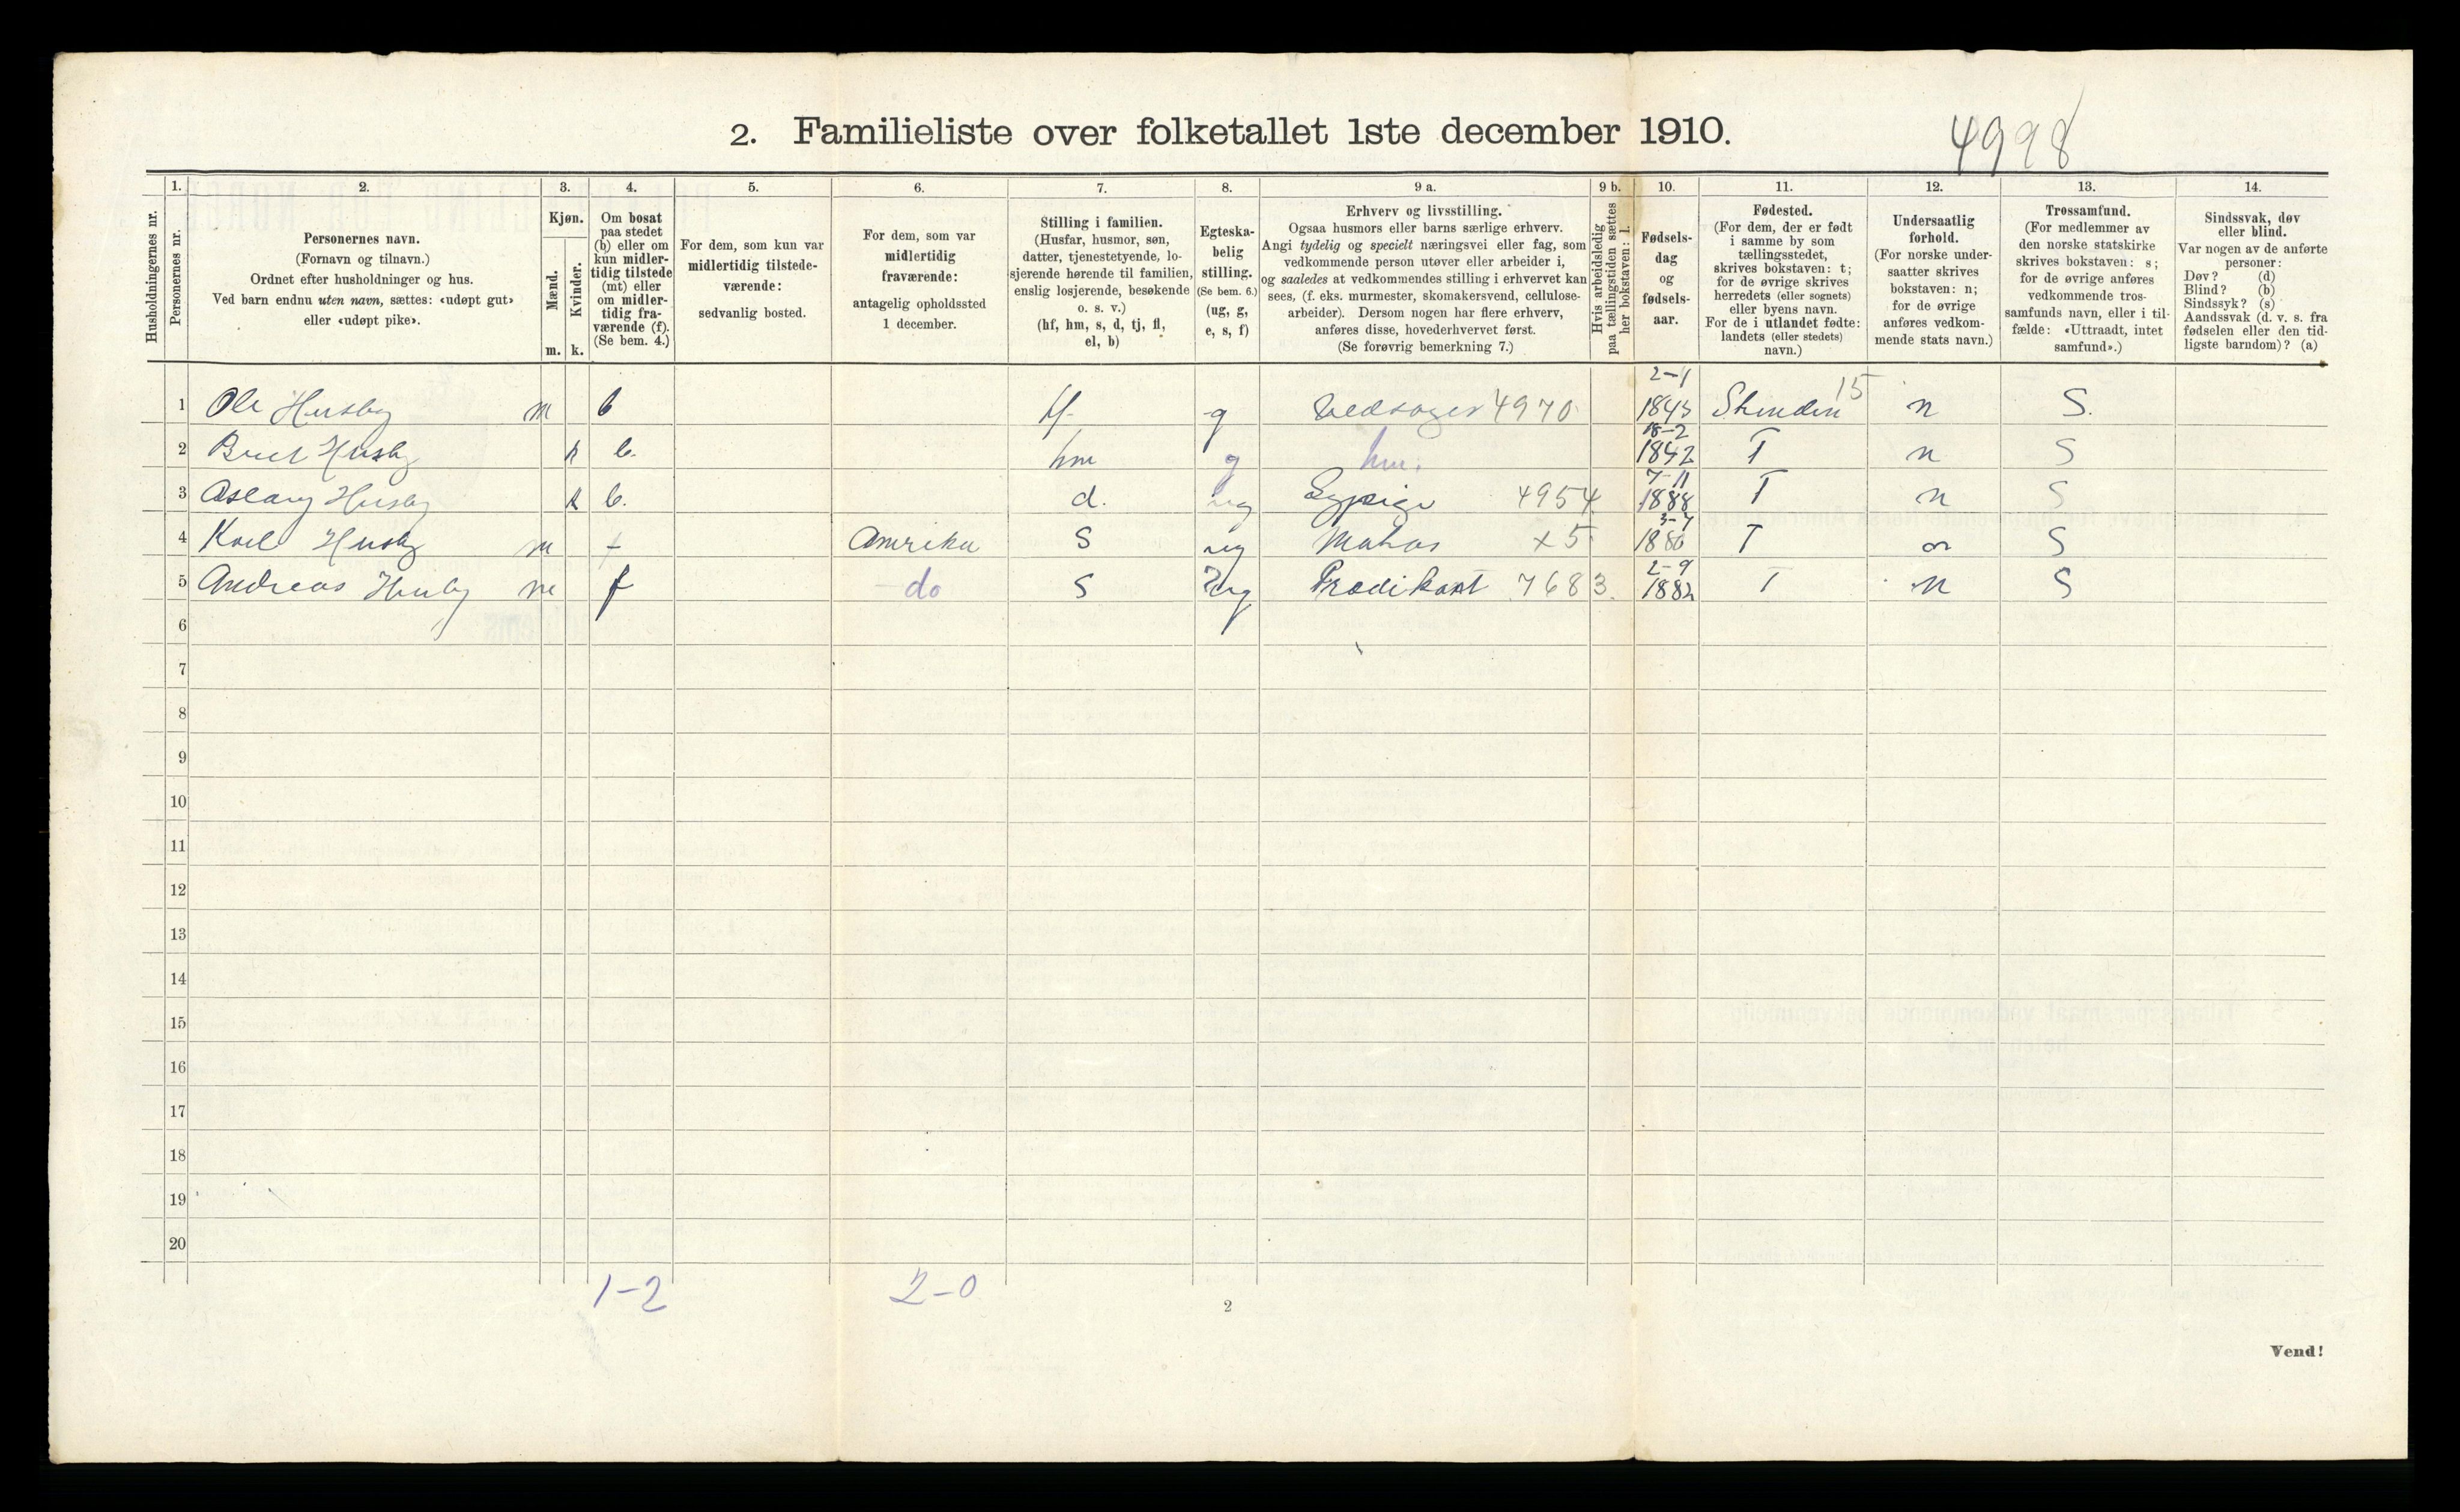 4998
2. Familieliste over folketallet 1ste december 1910.
Husholdningernes nr.
1. Personernes nr.
2. Personernes navn.
(Fornavn og tilnavn.)
Ordnet efter husholdninger og hus.
Ved barn endnu uten navn, sættes: «udøpt gut»
eller «udøpt pike».
3. Kjøn.
Mænd. m.
Kvinder. k.
4. Om bosat
paa stedet
(b) eller om
kun midler-
tidig tilstede
(mt) eller
om midler-
tidig fra-
værende (f).
(Se bem. 4.)
5. For dem, som kun var
midlertidig tilstede-
værende:
sedvanlig bosted.
6. For dem, som var
midlertidig
fraværende:
antagelig opholdssted
1 december.
7. Stilling i familien.
(Husfar, husmor, søn,
datter, tjenestetyende, lo-
sjerende hørende til familien,
enslig losjerende, besøkende
o. s. v.)
(hf, hm, s, d, tj, fl,
el, b)
8. Egteska-
belig
stilling.
(Se bem. 6.)
(ug, g,
e, s, f)
9 a. Erhverv og livsstilling.
Ogsaa husmors eller barns særlige erhverv.
Angi tydelig og specielt næringsvei eller fag, som
vedkommende person utøver eller arbeider i,
og saaledes at vedkommendes stilling i erhvervet kan
sees, (f. eks. murmester, skomakersvend, cellulose-
arbeider). Dersom nogen har flere erhverv,
anføres disse, hovederhvervet først.
(Se forøvrig bemerkning 7.)
9 b. Hvis arbeidsledig
paa tællingstiden sættes
her bokstaven: l.
10. Fødsels-
dag
og
fødsels-
aar.
11. Fødested.
(For dem, der er født
i samme by som
tællingsstedet,
skrives bokstaven: t;
for de øvrige skrives
herredets (eller sognets)
eller byens navn.
For de i utlandet fødte:
landets (eller stedets)
navn.)
12. Undersaatlig
forhold.
(For norske under-
saatter skrives
bokstaven: n;
for de øvrige
anføres vedkom-
mende stats navn.)
13. Trossamfund.
(For medlemmer av
den norske statskirke
skrives bokstaven: s;
for de øvrige anføres
vedkommende tros-
samfunds navn, eller i til-
fælde: «Uttraadt, intet
samfund».)
14. Sindssvak, døv
eller blind.
Var nogen av de anførte
personer:
Døv? (d)
Blind? (b)
Sindssyk? (s)
Aandssvak (d. v. s. fra
fødselen eller den tid-
ligste barndom)? (a)
1 Ole Husby m b hf g Vedsager 4970 2-1 1843 15 n S.
2 Husby k b. hm g hm. 18-2 1842 T n S
3 Aslaug Husby k b. d. ug Sypige 4954 7-11 1888 T n S
4 Husby m f Amrika S ug x5 3-7 1880 T n S
5 Andreas Husby m f do S ug Prædikant 7683. 2-9 1882 T n S
6
7
8
9
10
11
12
13
14
15
16
17
18
19
20
1-2 2-0
2
Vend!